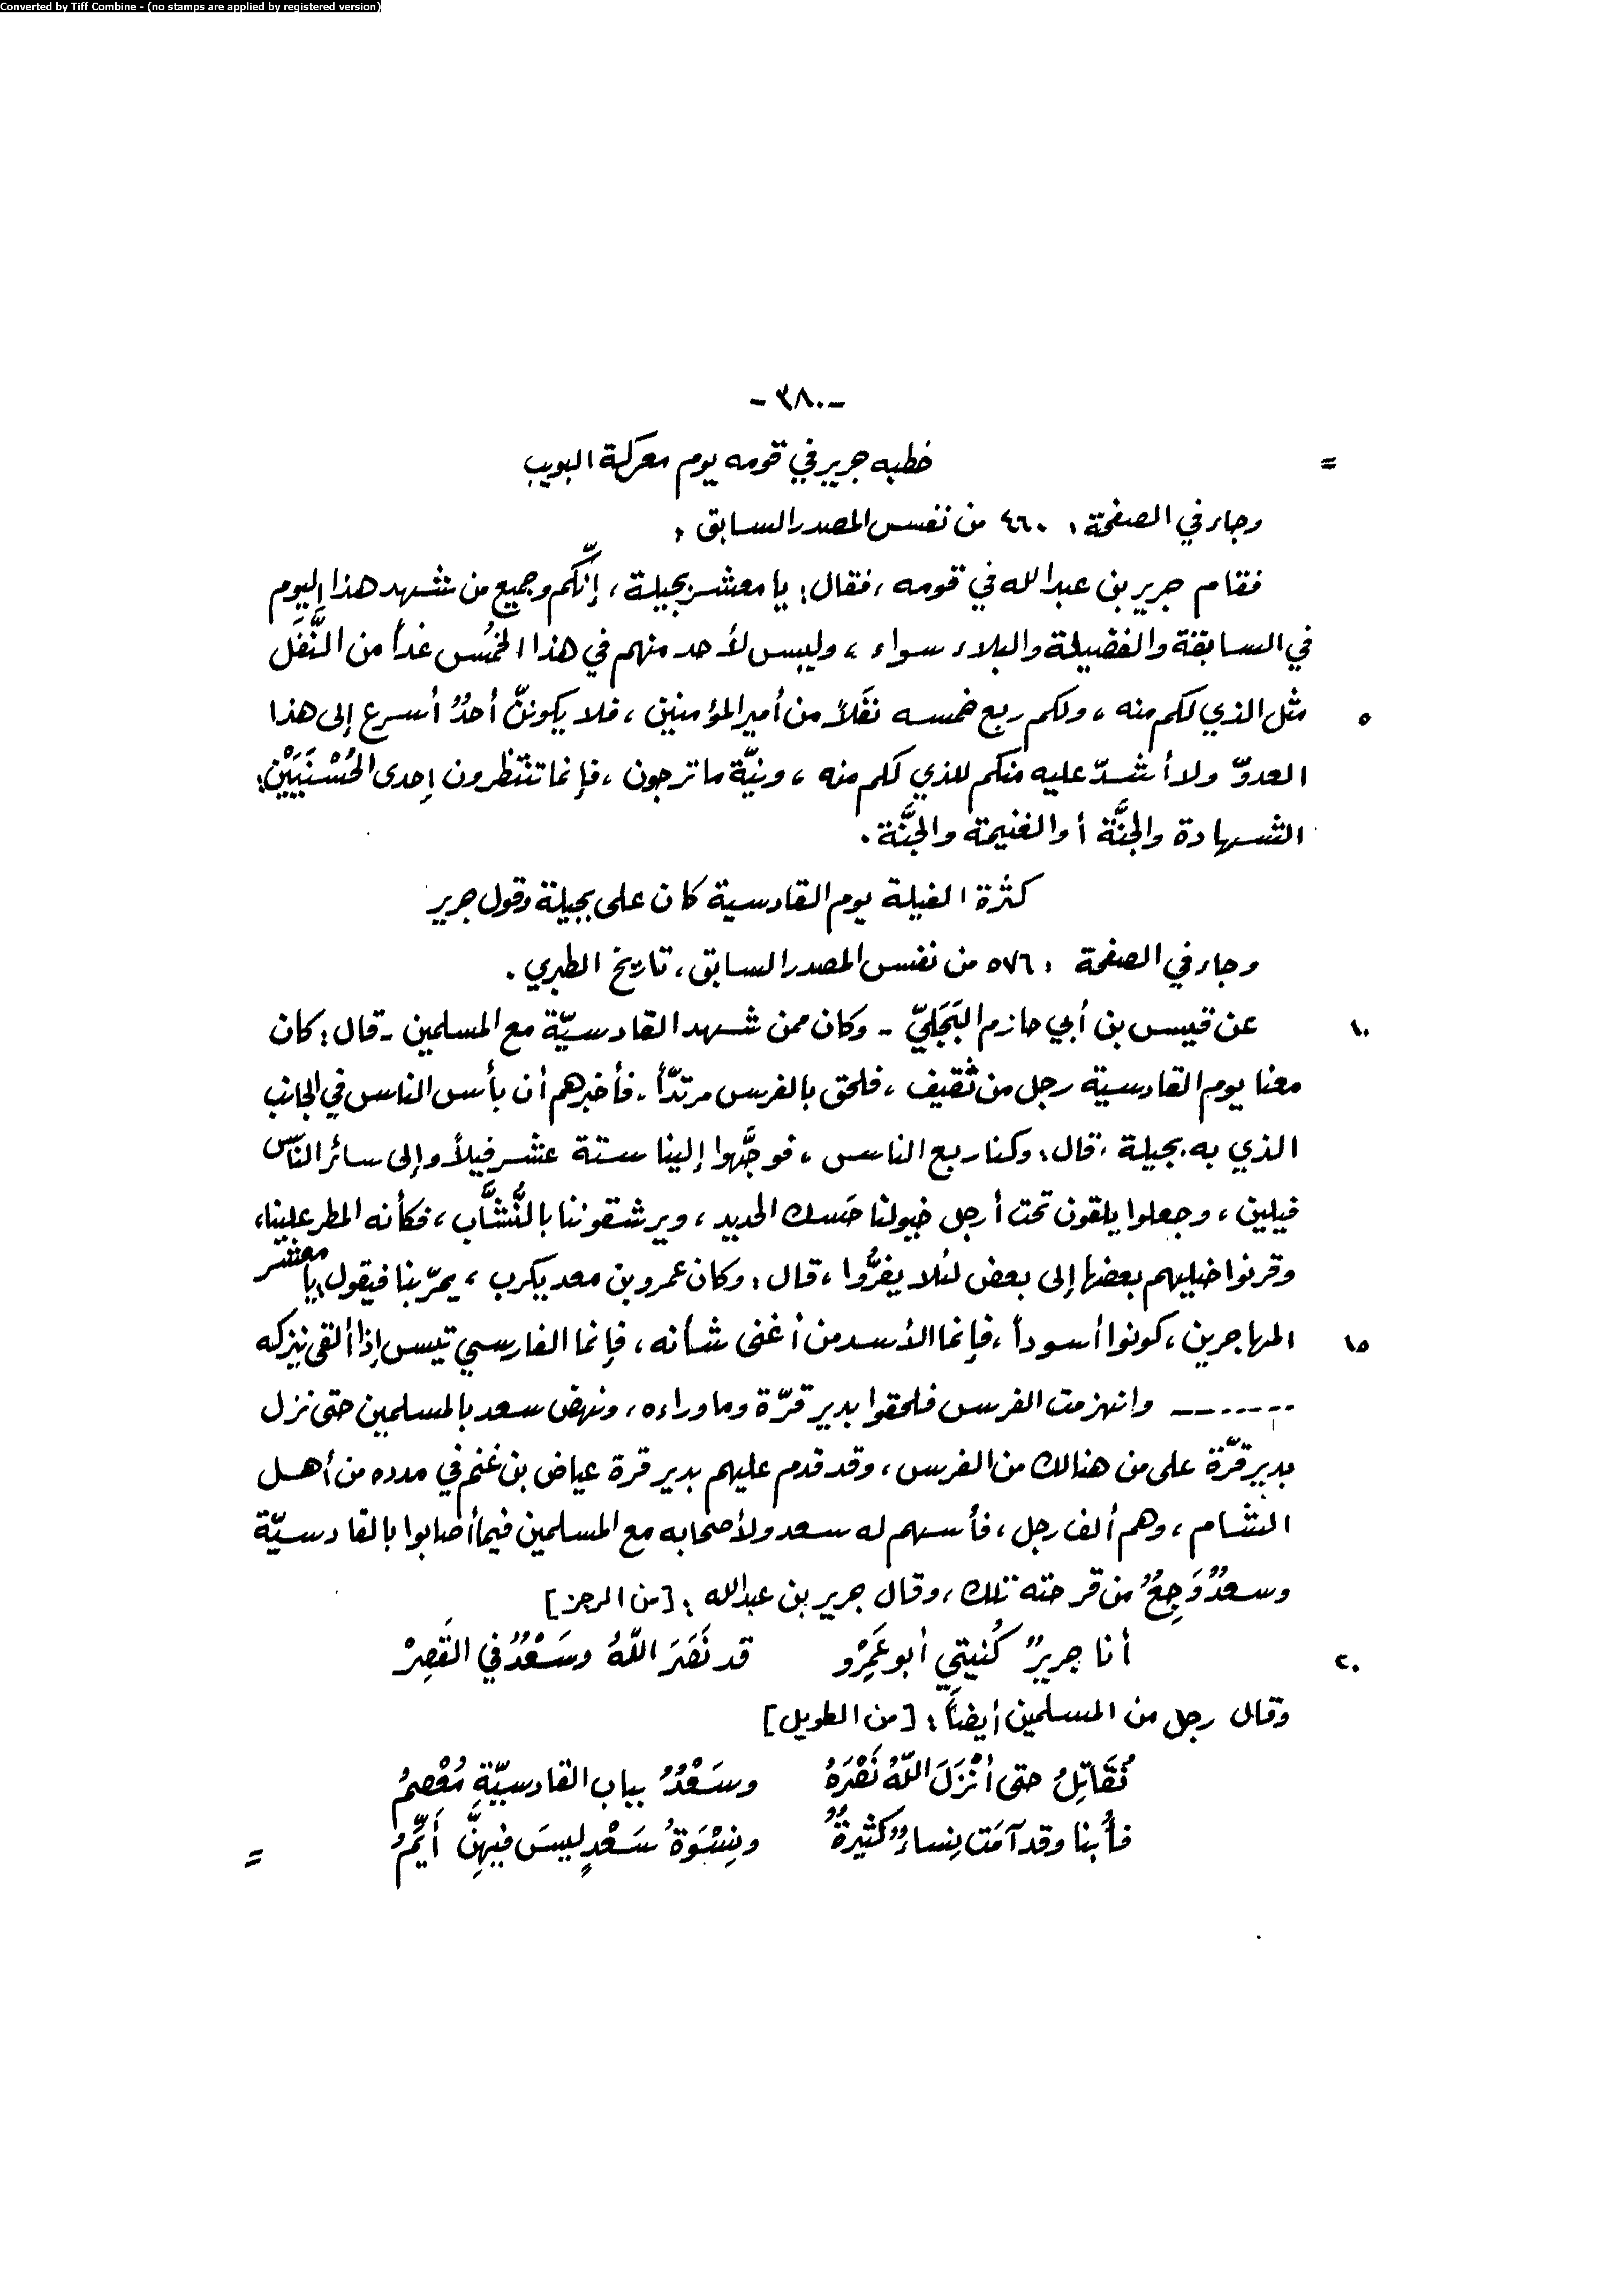 Converted by Tiff Combine - (no stamps are applied by registered version)
-٣٨٠-
= خطبه جرير في قومه يوم معركة البويب
وجاء في الصفحة: ٤٦٠ من نفس المصدر السابق:
فقام جرير بن عبدالله في قومه، فقال: يا معشر بجيلة، إنّكم وجميع من شهد هذا اليوم
في السابقة والفضيلة والبلاء سواء، وليس لأحد منهم في هذا الخمُس غداً من النَّفَل
٥ مثل الذي لكم منه، ولكم ربع خمسه نفَلاً من أمير المؤمنين، فلا يكوننّ أحدٌ أسرع إلى هذا
العدوّ ولا أشدّ عليه منكم للذي لكم منه، ونيّة ما ترجون، فإنما تنتظرون إحدى الحُسْنَيَيْن:
الشهادة والجنَّة أو الغنيمة والجنَّة.
كثرة الفيلة يوم القادسية كان على بجيلة وقول جرير
وجاء في الصفحة: ٥٧٦ من نفس المصدر السابق، تاريخ الطبري.
١٠ عن قيس بن أبي حازم البَجَليّ - وكان ممن شهد القادسيّة مع المسلمين - قال: كان
معنا يوم القادسية رجل من ثقيف، فلحق بالفرس مرتدّاً. فأخبرهم أن بأس الناس في الجانب
الذي به بجيلة، قال: وكنا ربع الناس، فوجَّهوا إلينا ستة عشر فيلاً وإلى سائر النّاس
فيلين، وجعلوا يلقون تحت أرجل خيولنا حَسك الحديد، ويرشقوننا بالنُّشَّاب، فكأنه المطر علينا،
وقرنوا خيليهم بعضها إلى بعض لئلا يفرُّوا، قال: وكان عمرو بن معد يكرب، يمرّ بنا فيقول: يا معشر
١٥ المهاجرين، كونوا أسوداً، فإنما الأسد من أغنى شأنه، فإنما الفارسي تيس إذا ألقى نيزكه
------- وانهزمت الفرس فلحقوا بدير قرّة وما وراءه، ونهض سعد بالمسلمين حتى نزل
بدير قرّة على من هنالك من الفرس، وقد قدم عليهم بدير قرة عياض بن غنم في مدده من أهل
الشام، وهم ألف رجل، فأسهم له سعد ولأصحابه مع المسلمين فيما أصابوا بالقادسيّة
وسعدٌ وَجِعٌ من قرحته تلك، وقال جرير بن عبدالله: [من الرجز]
٢٠ أنا جريرٌ كُنيتي أبو عَمِرْو قد نَصَرَ اللهُ وسَعْدٌ في القَصِرْ
وقال رجل من المسلمين أيضاً: [من الطويل]
نُقَاتِلُ حتى أنْزَلَ اللهُ نَصْرَهُ وسَعْدٌ بباب القادسيّةِ مُعْصِمُ
فأُبنا وقد آمَت نِساءٌ كثيرةٌ ونِسْوَةُ سَعْدٍ ليسَ فيهِنَّ أَيِّمُ =